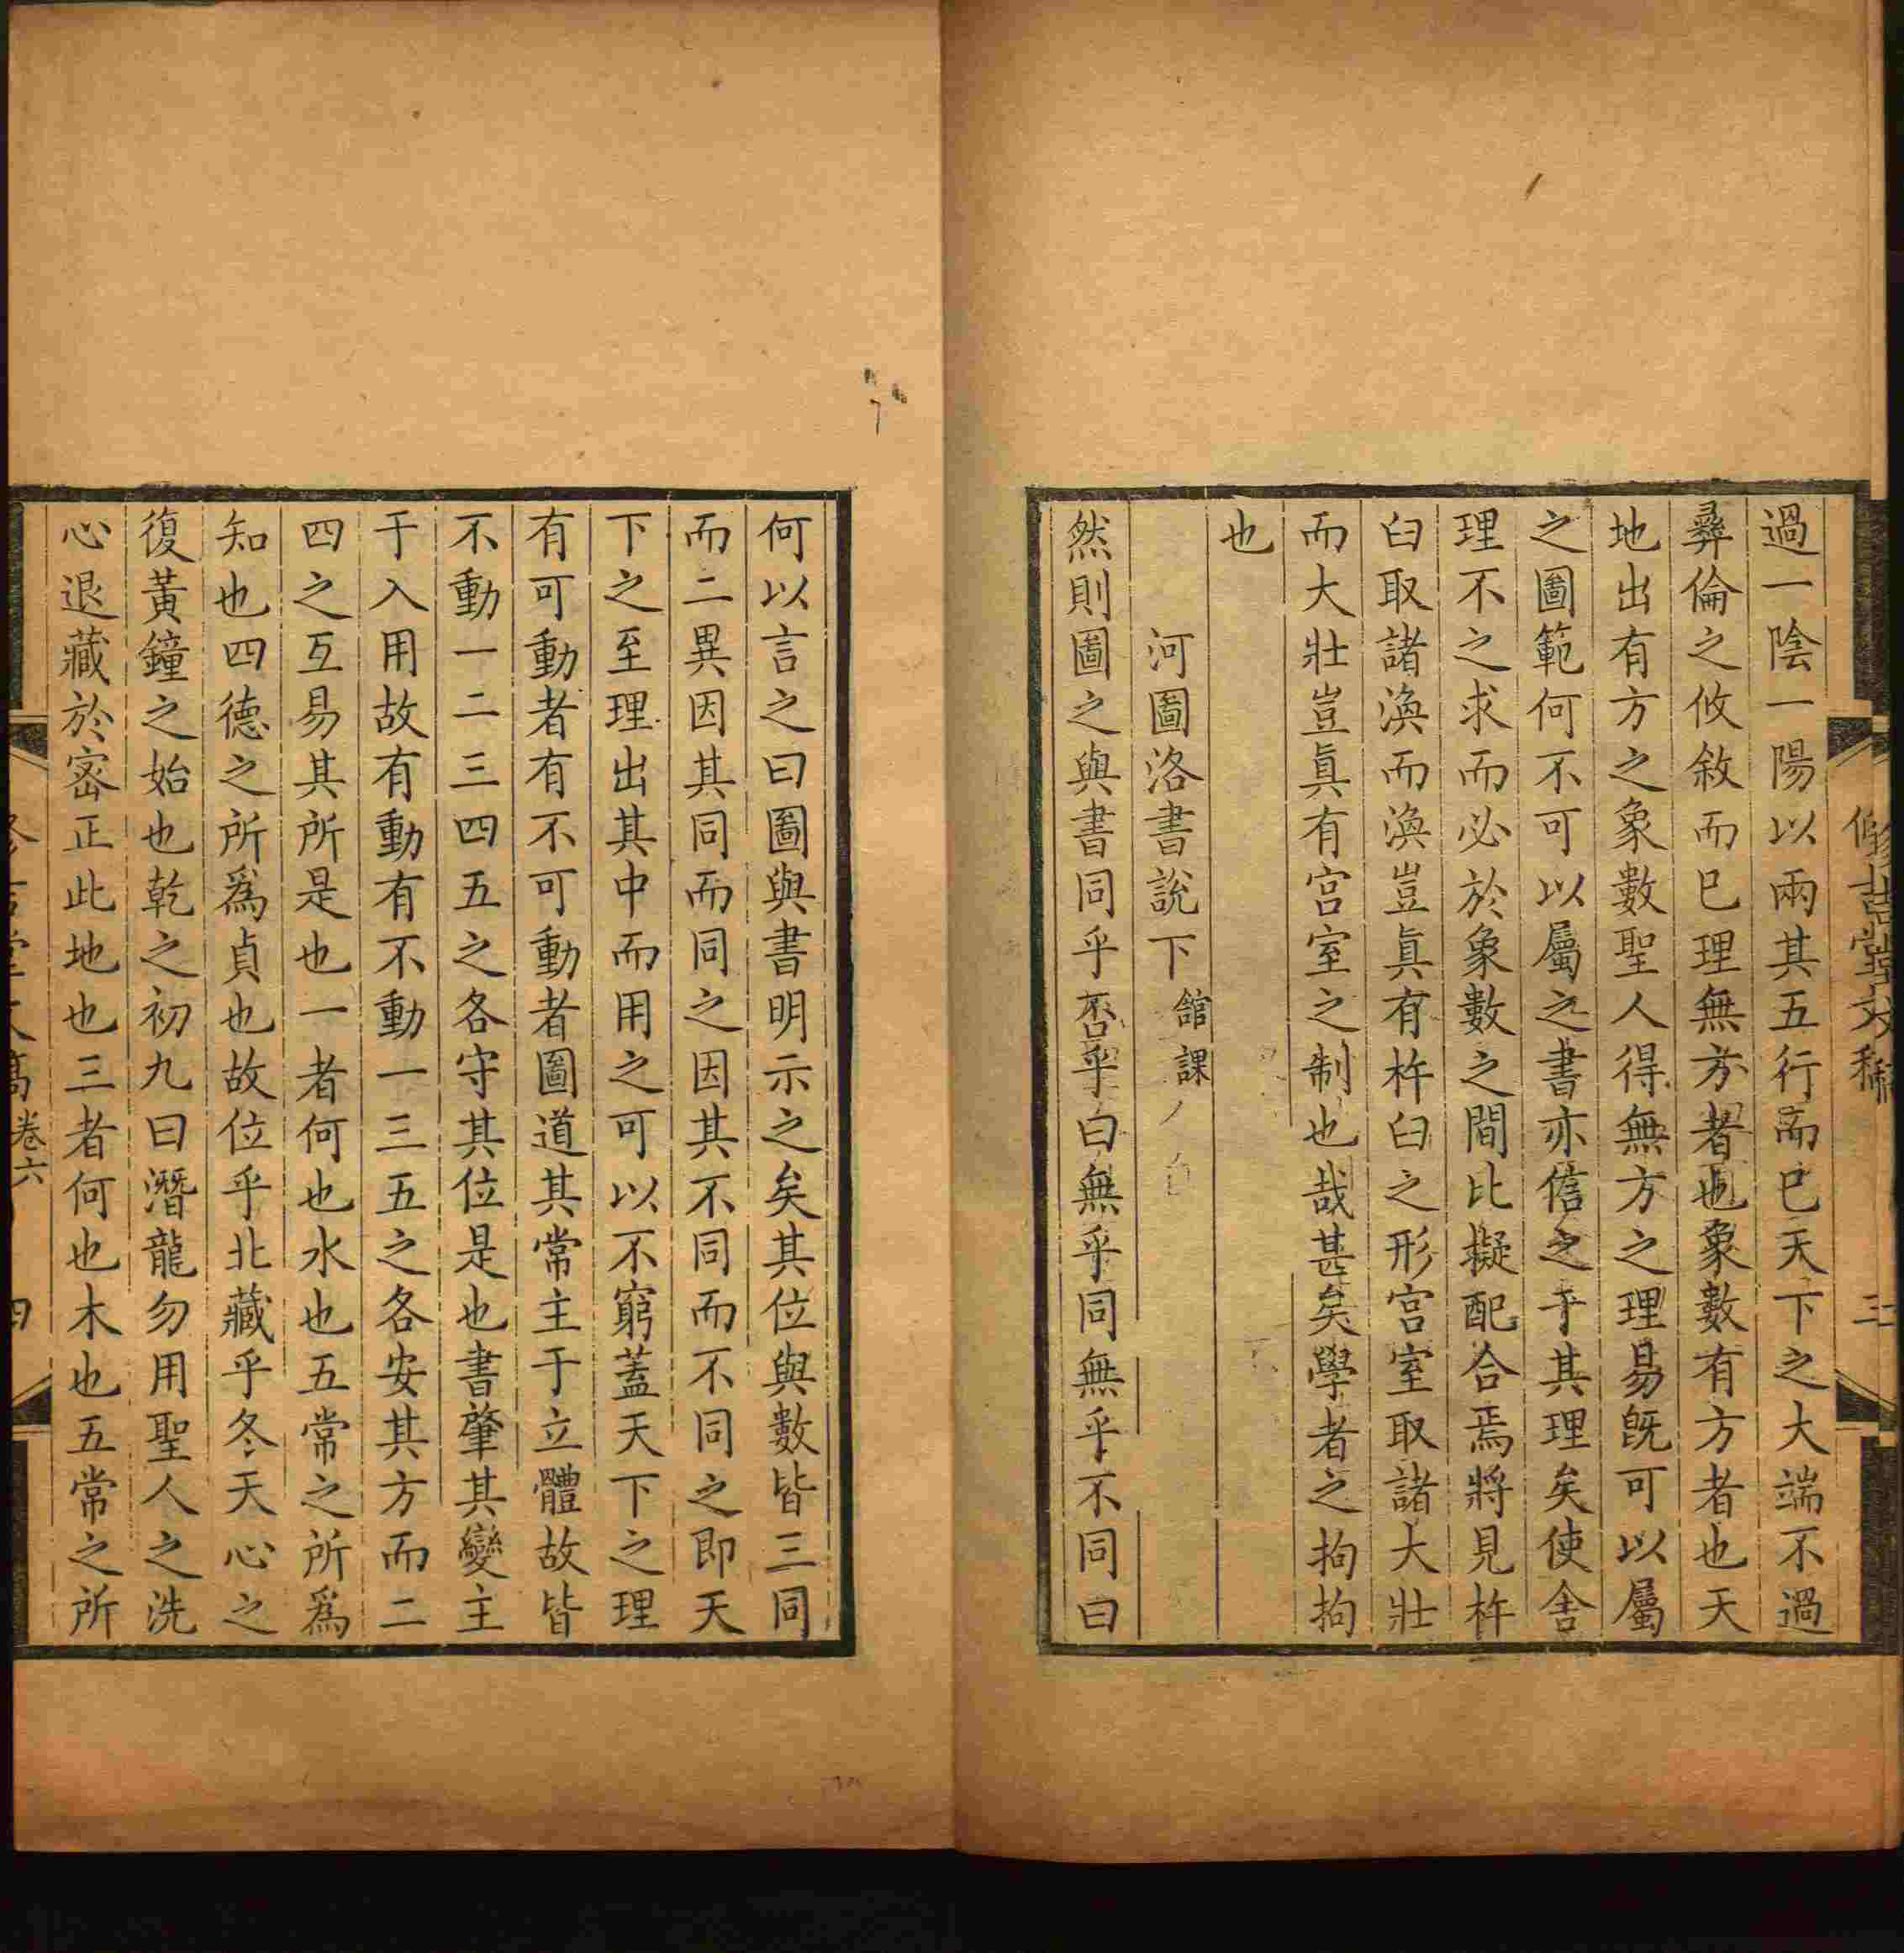 脩吉堂文稿
三
過一陰一陽以兩其五行而已天下之大端不過
彝倫之攸敘而已理無方者也象數有方者也天
地出有方之象數聖人得無方之理易既可以屬
之圖範何不可以屬之書亦信之于其理矣使舍
理不之求而必於象數之間比擬配合焉將見杵
臼取諸渙而渙豈眞有杵臼之形宮室取諸大壯
而大壯豈眞有宮室之制也哉甚矣學者之拘拘
也
河圖洛書說下 舘課
然則圖之與書同乎否乎曰無乎同無乎不同曰
何以言之曰圖與書明示之矣其位與數皆三同
而二異因其同而同之因其不同而不同之即天
下之至理出其中而用之可以不窮蓋天下之理
有可動者有不可動者圖道其常主于立體故皆
不動一二三四五之各守其位是也書肇其變主
于入用故有動有不動一三五之各安其方而二
四之互易其所是也一者何也水也五常之所爲
知也四德之所爲貞也故位乎北藏乎冬天心之
復黃鐘之始也乾之初九曰潛龍勿用聖人之洗
心退藏於密正此地也三者何也木也五常之所
吉堂文稿 卷六
四